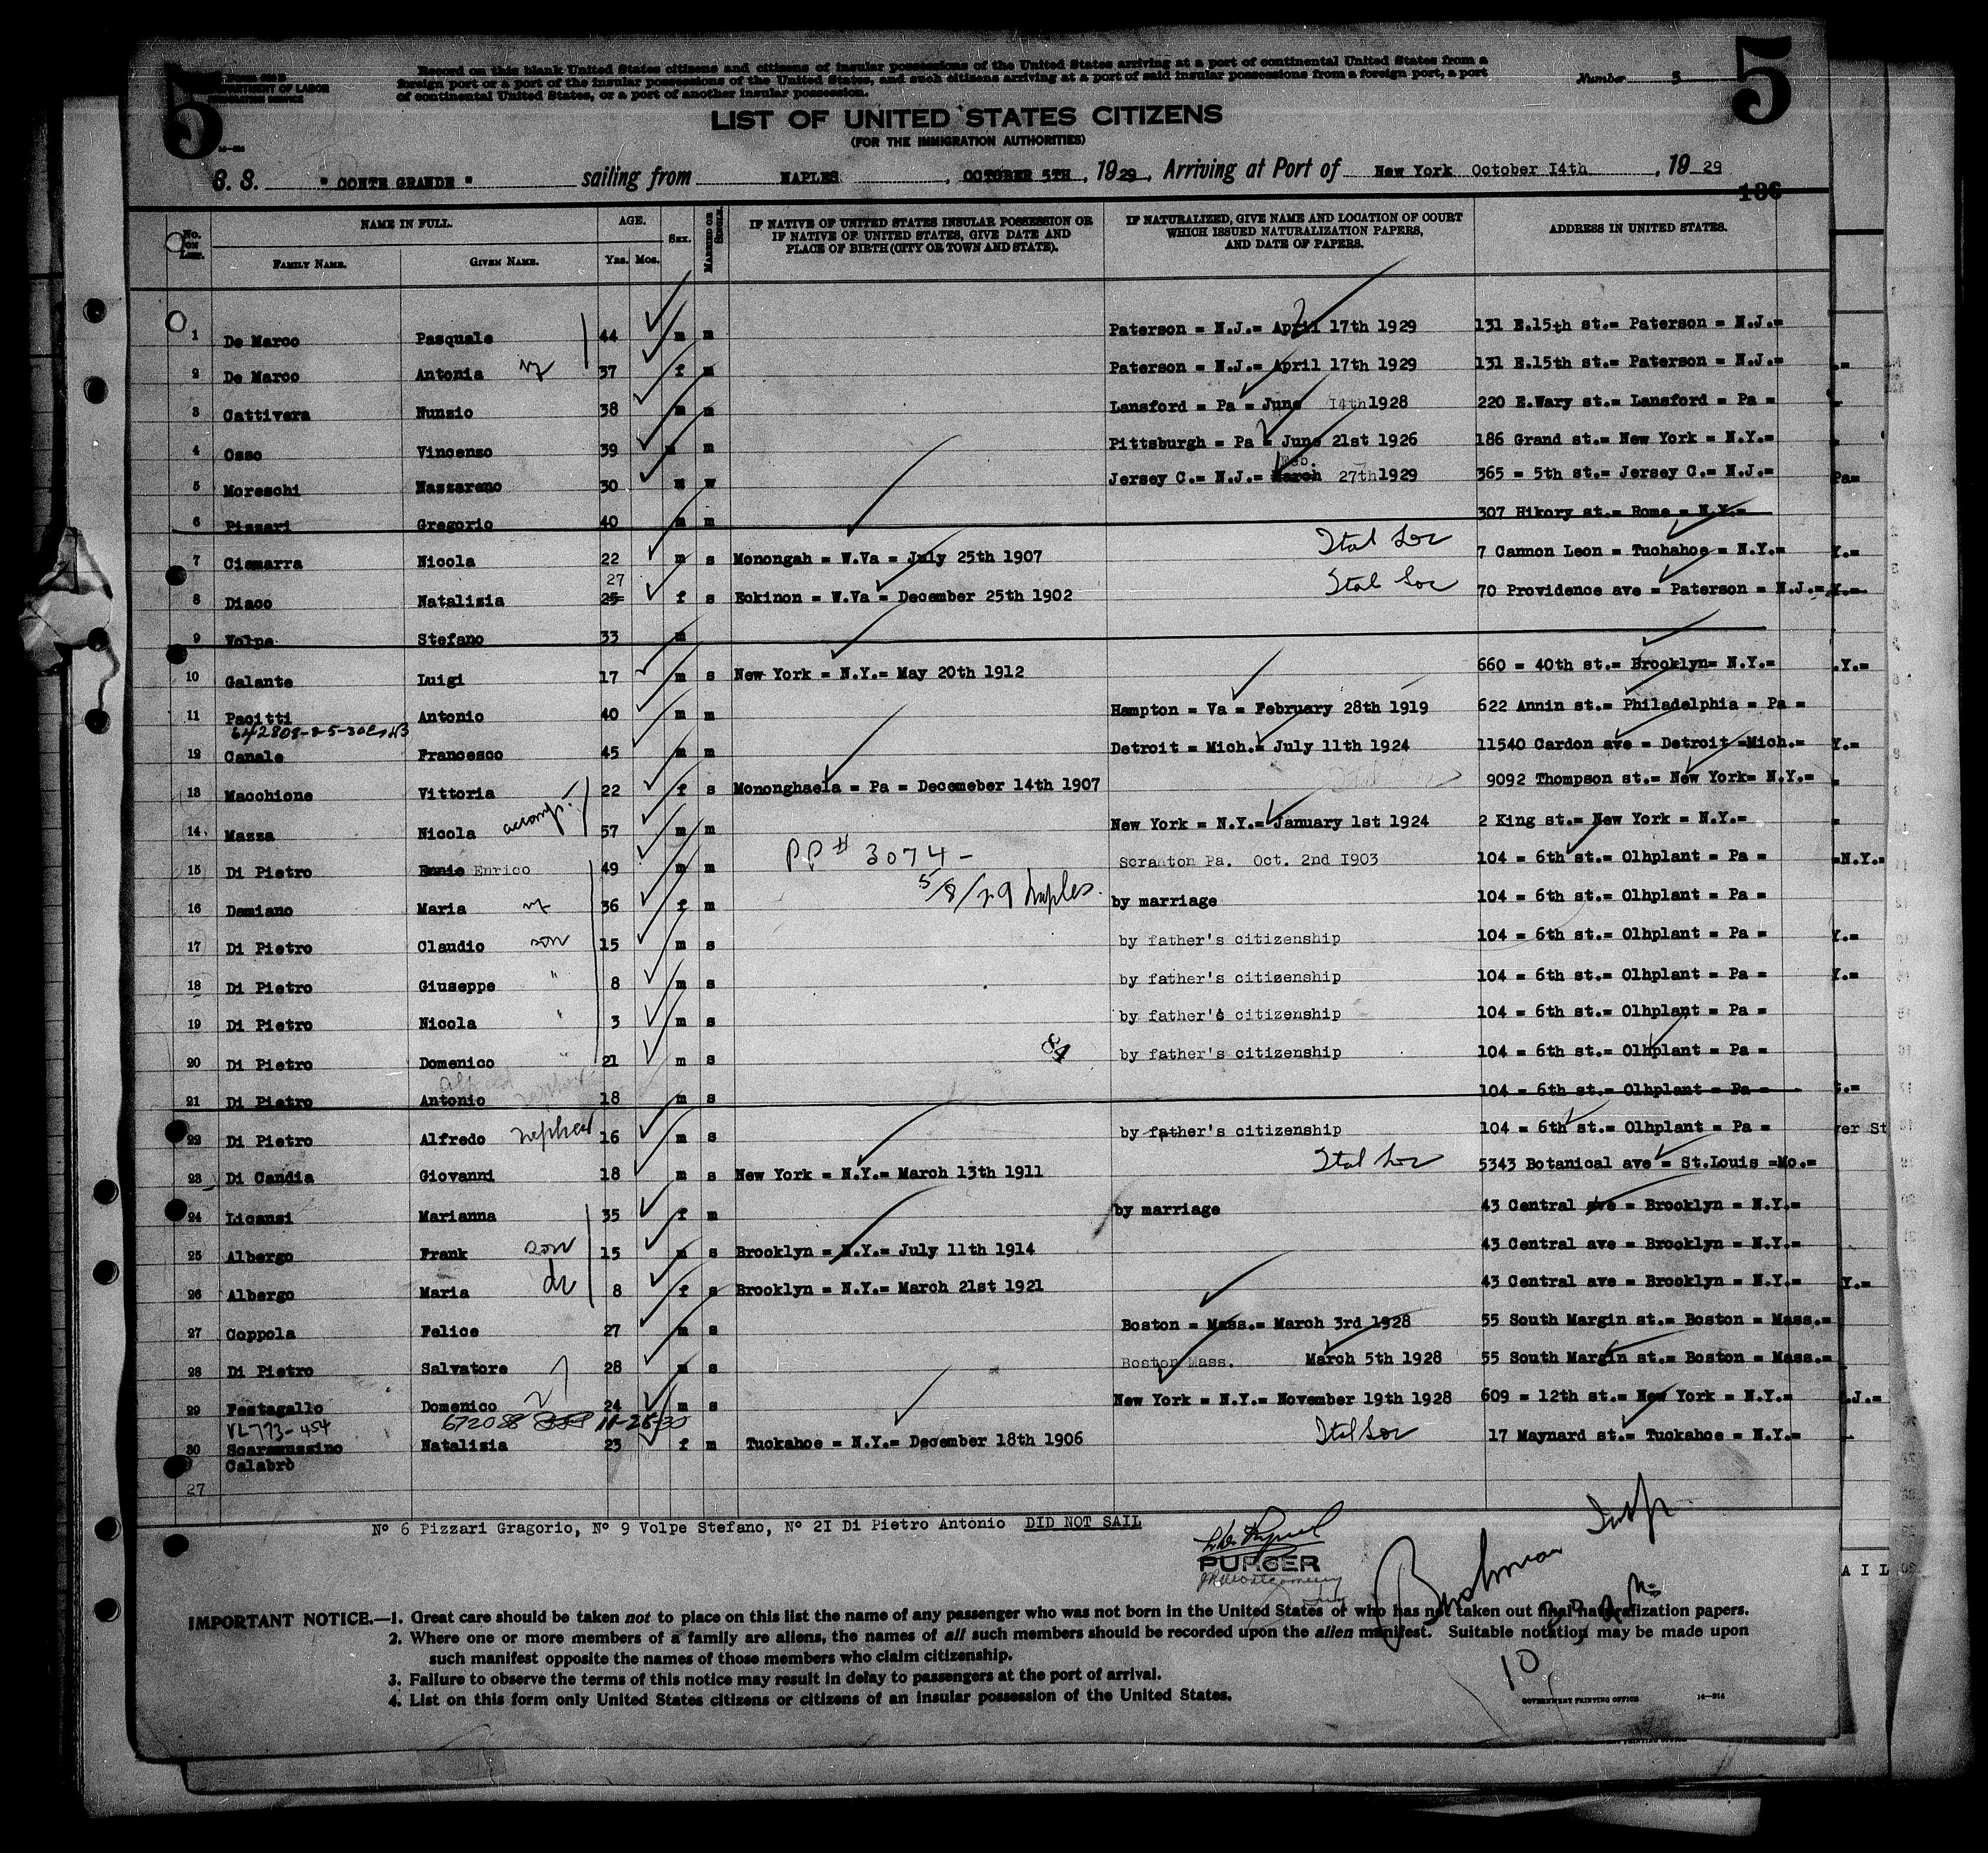 5
5
DEPARTMENT OF LABOR
IMMIGRATION SERVICE
Record on this blank United States citizens and citizens of insular possessions of the United States arriving at a port of continental United States from a
foreign port or a port of the insular possessions of the United States, and such citizens arriving at a port of said insular possessions from a foreign port, a port
of continental United States, or a port of another insular possession.
Number 5
LIST OF UNITED STATES CITIZENS
(FOR THE IMMIGRATION AUTHORITIES)
S. S. " CONTE GRANDE " sailing from NAPLES , OCTOBER 5TH , 1929, Arriving at Port of New York October 14th , 19 29
186
No. ON LIST. NAME IN FULL. AGE. SEX. MARRIED OR SINGLE. IF NATIVE OF UNITED STATES INSULAR POSSESSION OR IF NATIVE OF UNITED STATES, GIVE DATE AND PLACE OF BIRTH (CITY OR TOWN AND STATE). IF NATURALIZED, GIVE NAME AND LOCATION OF COURT WHICH ISSUED NATURALIZATION PAPERS, AND DATE OF PAPERS. ADDRESS IN UNITED STATES.
FAMILY NAME. GIVEN NAME. Yrs. Mos.
1 De Marco Pasquale 44 m m Paterson = N.J.= April 17th 1929 131 E.15th st.= Paterson = N.J.=
2 De Marco Antonia 37 f m Paterson = N.J.= April 17th 1929 131 E.15th st.= Paterson = N.J.=
3 Cattivera Nunzio 38 m m Lansford = Pa = June 14th 1928 220 E.Wary st.= Lansford = Pa =
4 Osso Vincenzo 39 m m Pittsburgh = Pa = June 21st 1926 186 Grand st.= New York = N.Y.=
Feb.
5 Moreschi Nazzareno 30 m w Jersey C.= N.J.= March 27th 1929 365 = 5th st.= Jersey C.= N.J.=
6 Pizzari Gregorio 40 m m 307 Hikory st.= Rome = N.Y.=
7 Ciamarra Nicola 22 m s Monongah = W.Va = July 25th 1907 Ital Soc 7 Cannon Leon = Tuchahoe = N.Y.=
27
8 Diaco Natalizia 25 f s Eckinon = W.Va = December 25th 1902 Ital Soc 70 Providence ave = Paterson = N.J.=
9 Volpe Stefano 33 m
10 Galante Luigi 17 m s New York = N.Y.= May 20th 1912 660 = 40th st.= Brooklyn= N.Y.=
11 Pacitti Antonio 40 m m Hampton = Va = February 28th 1919 622 Annin st.= Philadelphia = Pa =
12 Canale Francesco 45 m m Detroit = Mich.= July 11th 1924 11540 Cardon ave = Detroit =Mich.=
13 Macchione Vittoria 22 f s Mononghaela = Pa = Decemeber 14th 1907 9092 Thompson st.= New York= N.Y.=
14 Mazza Nicola accomp. 57 m m New York = N.Y.= January 1st 1924 2 King st.= New York = N.Y.=
PP# 3074 -
15 Di Pietro Ennio Enrico 49 m m Scranton Pa. Oct. 2nd I903 104 = 6th st.= Olhplant = Pa =
5/8/29 Naples.
16 Damiano Maria 36 f m by marriage 104 = 6th st.= Olhplant = Pa =
17 Di Pietro Claudio son 15 m s by father's citizenship 104 = 6th st.= Olhplant = Pa =
18 Di Pietro Giuseppe " 8 m s by father's citizenship 104 = 6th st.= Olhplant = Pa =
19 Di Pietro Nicola " 3 m s by father's citizenship 104 = 6th st.= Olhplant = Pa =
20 Di Pietro Domenico " 21 m s by father's citizenship 104 = 6th st.= Olhplant = Pa =
21 Di Pietro Antonio 18 m s 104 = 6th st.= Olhplant = Pa =
22 Di Pietro Alfredo nephew 16 m s by father's citizenship 104 = 6th st.= Olhplant = Pa =
23 Di Candia Giovanni 18 m s New York = N.Y.= March 13th 1911 Ital Soc 5343 Botanical ave = St.Louis =Mo.=
24 Licansi Marianna 35 f m by marriage 43 Central ave = Brooklyn = N.Y.=
25 Albergo Frank son 15 m s Brooklyn = N.Y.= July 11th 1914 43 Central ave = Brooklyn = N.Y.=
26 Albergo Maria 8 f s Brooklyn = N.Y.= March 21st 1921 43 Central ave = Brooklyn = N.Y.=
27 Coppola Felice 27 m s Boston = Mass.= March 3rd 1928 55 South Margin st.= Boston = Mass.=
28 Di Pietro Salvatore 28 m s Boston Mass. March 5th 1928 55 South Margin st.= Boston = Mass.=
29 Festagallo Domenico 24 m s New York = N.Y.= November 19th 1928 609 = 12th st.= New York = N.Y.=
VL 773-454 672088 11-25-30
30 Scaramussino Natalizia 23 f m Tuckahoe = N.Y.= December 18th 1906 Ital Soc 17 Maynard st.= Tuckahoe = N.Y.=
Calabrò
27
Nº 6 Pizzari Gragorio, Nº 9 Volpe Stefano, Nº 2I Di Pietro Antonio DID NOT SAIL
PURSER
Insp
IMPORTANT NOTICE.—1. Great care should be taken not to place on this list the name of any passenger who was not born in the United States or who has not taken out final naturalization papers.
2. Where one or more members of a family are aliens, the names of all such members should be recorded upon the alien manifest. Suitable notation may be made upon
such manifest opposite the names of those members who claim citizenship.
3. Failure to observe the terms of this notice may result in delay to passengers at the port of arrival.
4. List on this form only United States citizens or citizens of an insular possession of the United States.
10
GOVERNMENT PRINTING OFFICE